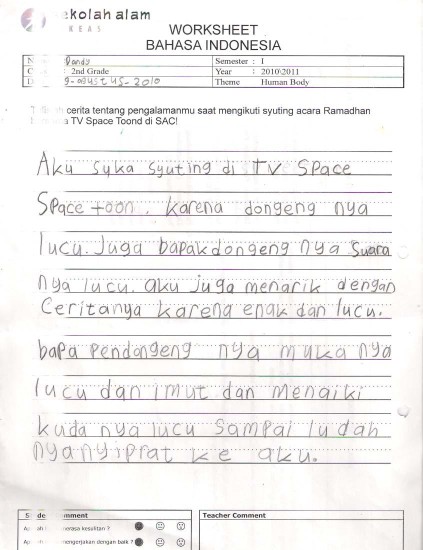 ekolah alam
WORKSHEET
BAHASA INDONESIA
Dandy
Semester : I
: 2nd Grade
Year : 2010\2011
9-agustus-2010
Theme Human Body
cerita tentang pengalamanmu saat mengikuti syuting acara Ramadhan
TV Space Toond di SAC!
Aku suka syuting di TV SPace
Space toon. karena dongeng nya
lucu. Juga bapak dongeng nya Suara
nya lucu. aku juga menarik dengan
Ceritanya karena enak dan lucu.
bapa Pendongeng nya muka nya
lucu dan imut dan menaiki
kuda nya lucu Sampai ludah
nyanyiprat ke aku.
Teacher Comment
merasa kesulitan ?
mengerjakan dengan baik ?